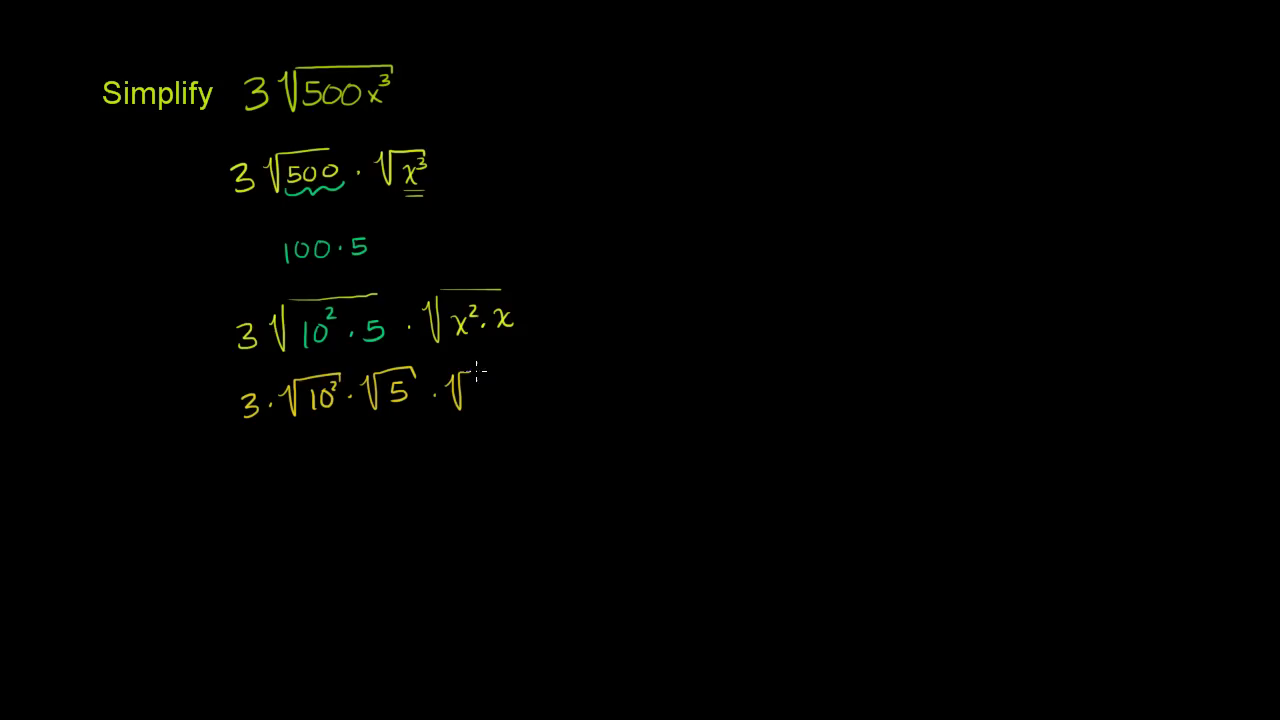 Simplify 3√500x³
3√500 · √x³
100 · 5
3√10² · 5 · √x² · x
3 · √10² · √5 · √